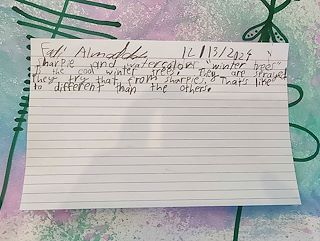 12/13/2024
sharpie and watercolors "winter trees"
the cool winter trees. They are
they try that from sharpies. That's like
to different than the others.